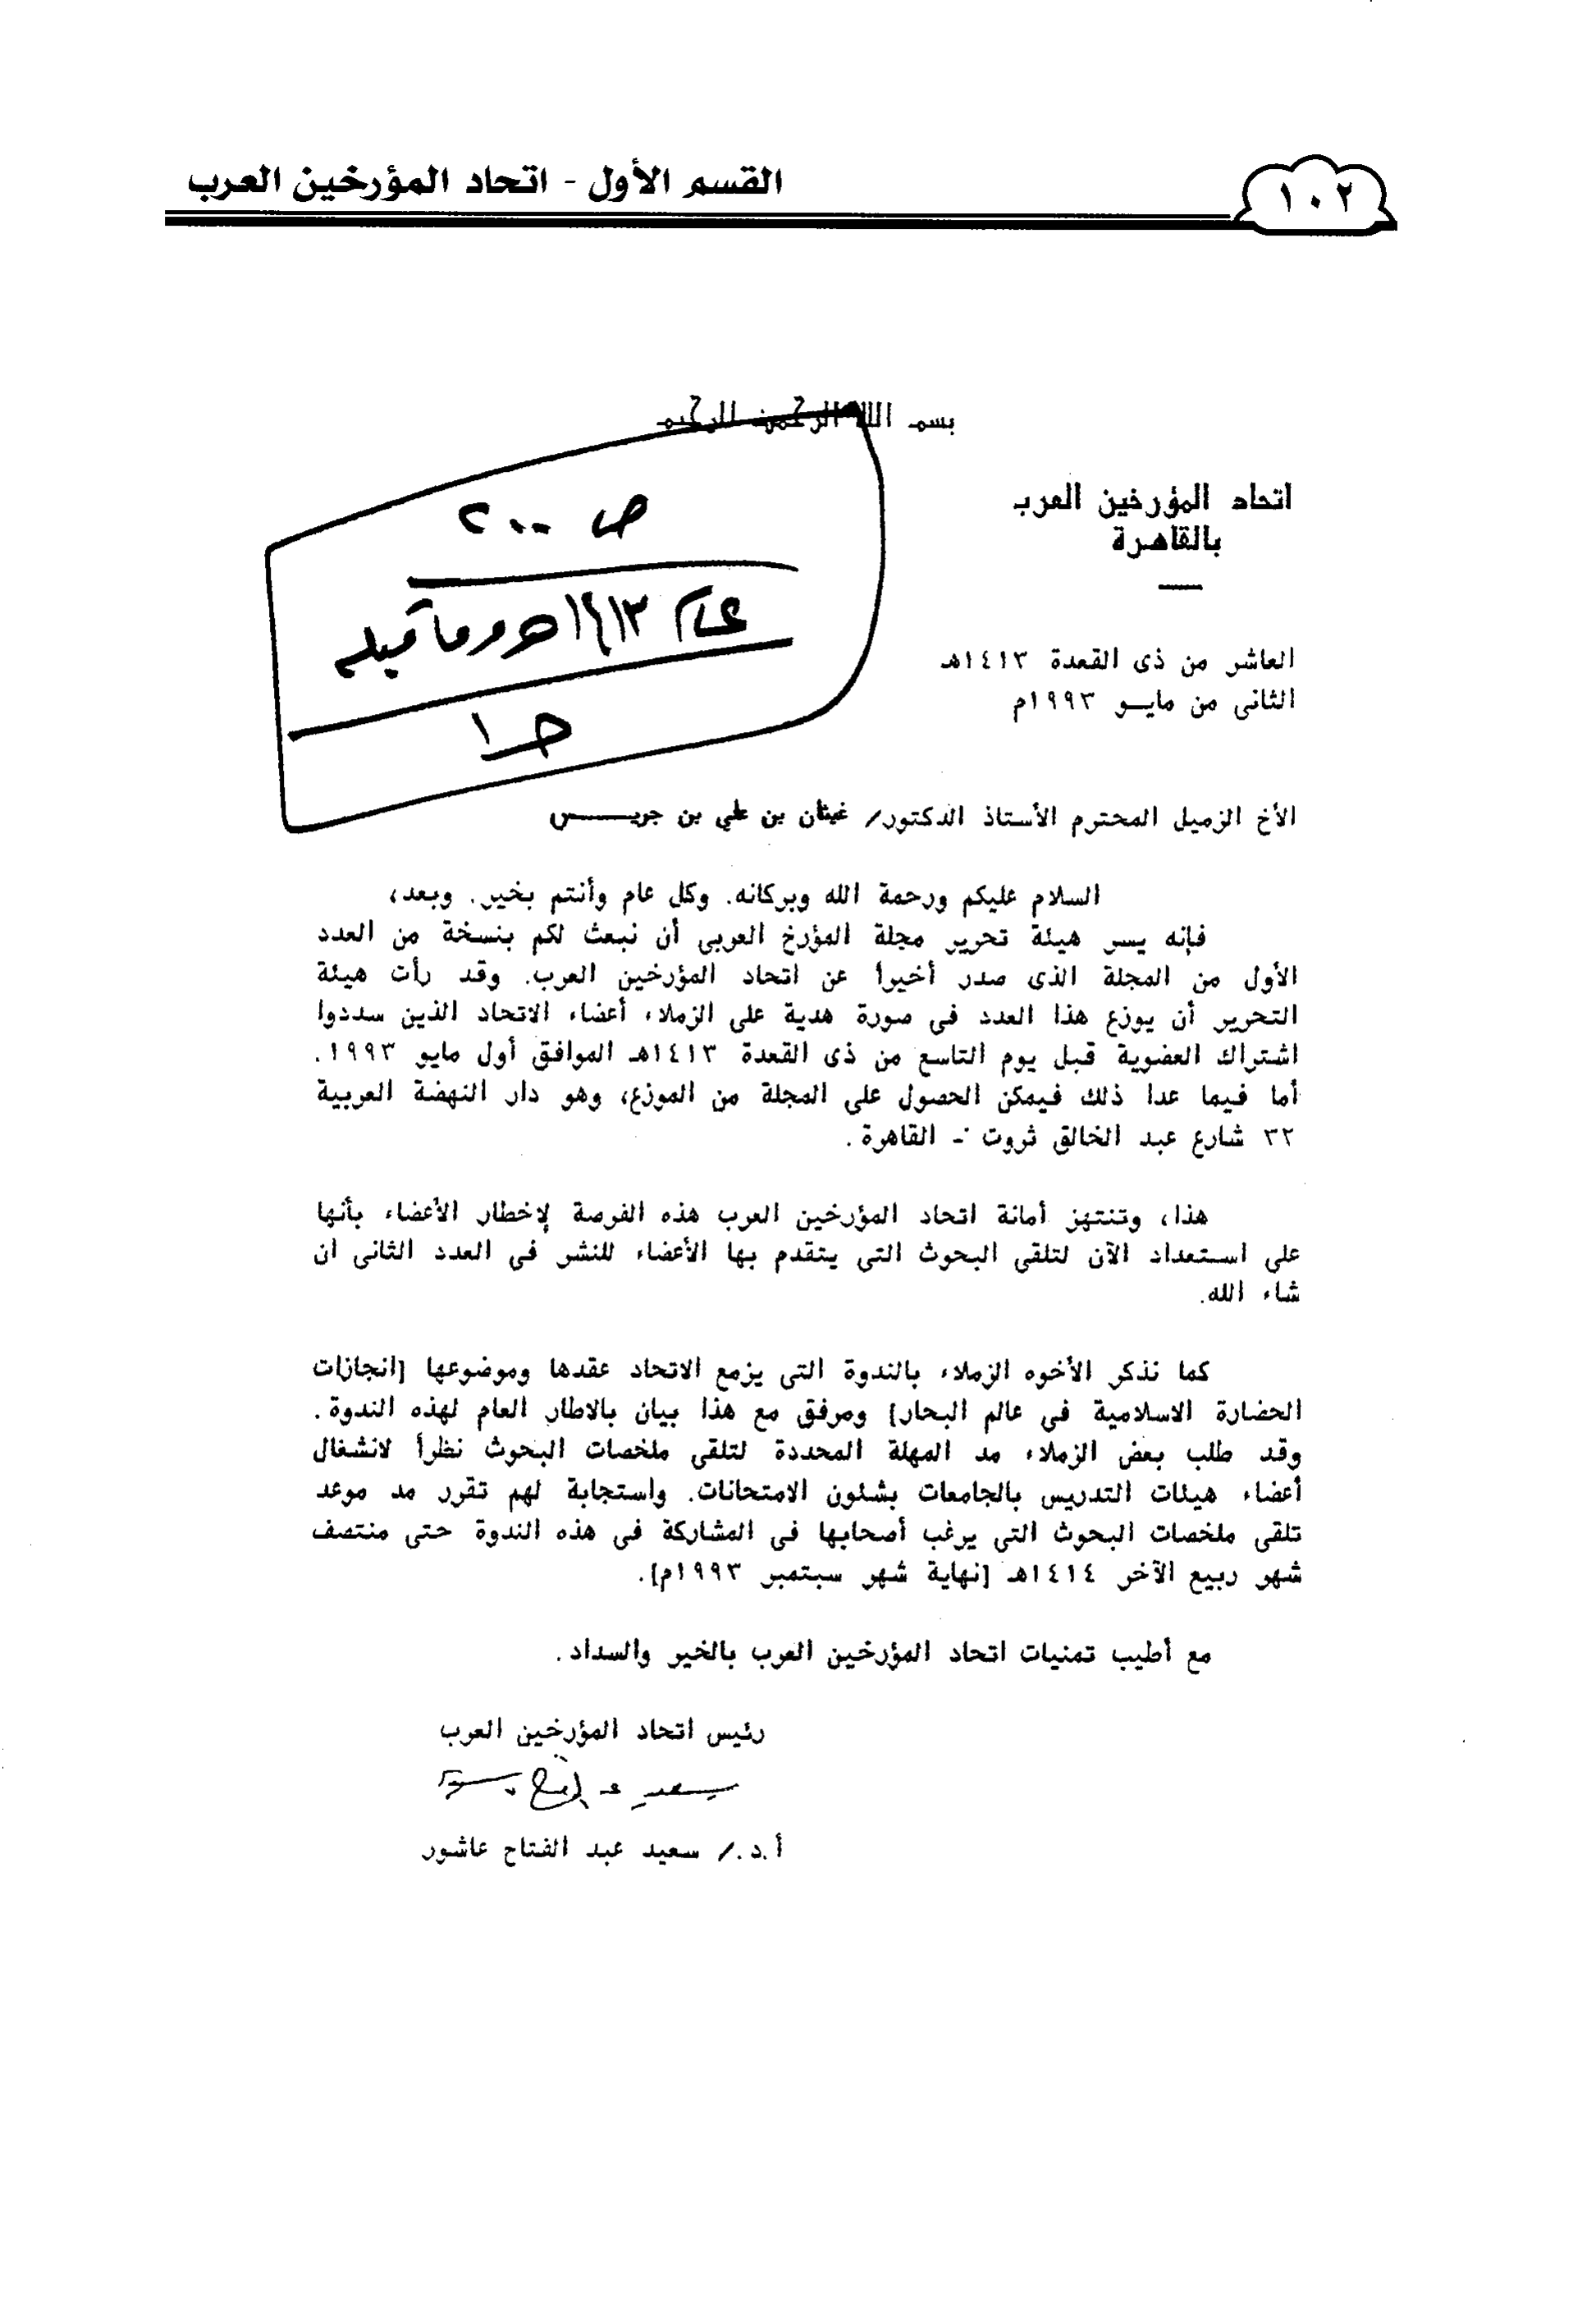 ١٠٢
القسم الأول - اتحاد المؤرخين العرب
بسم الله الرحمن الرحيم
ص ٢٠٠
عام ١٤١٣هـ وما قبله
حـ ١
اتحاد المؤرخين العرب
بالقاهرة
العاشر من ذى القعدة ١٤١٣هـ
الثانى من مايو ١٩٩٣م
الأخ الزميل المحترم الأستاذ الدكتور/ غيثان بن علي بن جريس
السلام عليكم ورحمة الله وبركاته. وكل عام وأنتم بخير. وبعد،
فإنه يسر هيئة تحرير مجلة المؤرخ العربى أن نبعث لكم بنسخة من العدد
الأول من المجلة الذى صدر أخيراً عن اتحاد المؤرخين العرب. وقد رأت هيئة
التحرير أن يوزع هذا العدد فى صورة هدية على الزملاء أعضاء الاتحاد الذين سددوا
اشتراك العضوية قبل يوم التاسع من ذى القعدة ١٤١٣هـ الموافق أول مايو ١٩٩٣.
أما فيما عدا ذلك فيمكن الحصول على المجلة من الموزع، وهو دار النهضة العربية
٣٢ شارع عبد الخالق ثروت - القاهرة.
هذا، وتنتهز أمانة اتحاد المؤرخين العرب هذه الفرصة لإخطار الأعضاء بأنها
على استعداد الآن لتلقى البحوث التى يتقدم بها الأعضاء للنشر فى العدد الثانى ان
شاء الله.
كما نذكر الأخوه الزملاء بالندوة التى يزمع الاتحاد عقدها وموضوعها [انجازات
الحضارة الاسلامية فى عالم البحار] ومرفق مع هذا بيان بالاطار العام لهذه الندوة.
وقد طلب بعض الزملاء مد المهلة المحددة لتلقى ملخصات البحوث نظراً لانشغال
أعضاء هيئات التدريس بالجامعات بشئون الامتحانات. واستجابة لهم تقرر مد موعد
تلقى ملخصات البحوث التى يرغب أصحابها فى المشاركة فى هذه الندوة حتى منتصف
شهر ربيع الآخر ١٤١٤هـ [نهاية شهر سبتمبر ١٩٩٣م].
مع أطيب تمنيات اتحاد المؤرخين العرب بالخير والسداد.
رئيس اتحاد المؤرخين العرب
أ.د./ سعيد عبد الفتاح عاشور